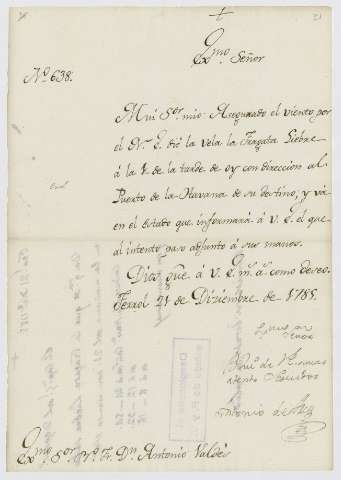 Exmo Señor
No 638.
Mui Sor mio: Asegurado el viento por
el N. E. dió la vela la Fragata Liebre
á la 1. de la tarde de oy con direccion al
Puerto de la Havana de su destino, y vá
en el estado que informará á V. E. el que
al intento paso adjunto á sus manos.
Dios gue á V. E. ms as como deseo.
Ferrol 21 de Diziembre de 1785.
Exmo Sor
Antonio de
Exmo Sor Bo Fr. Dn Antonio Valdés